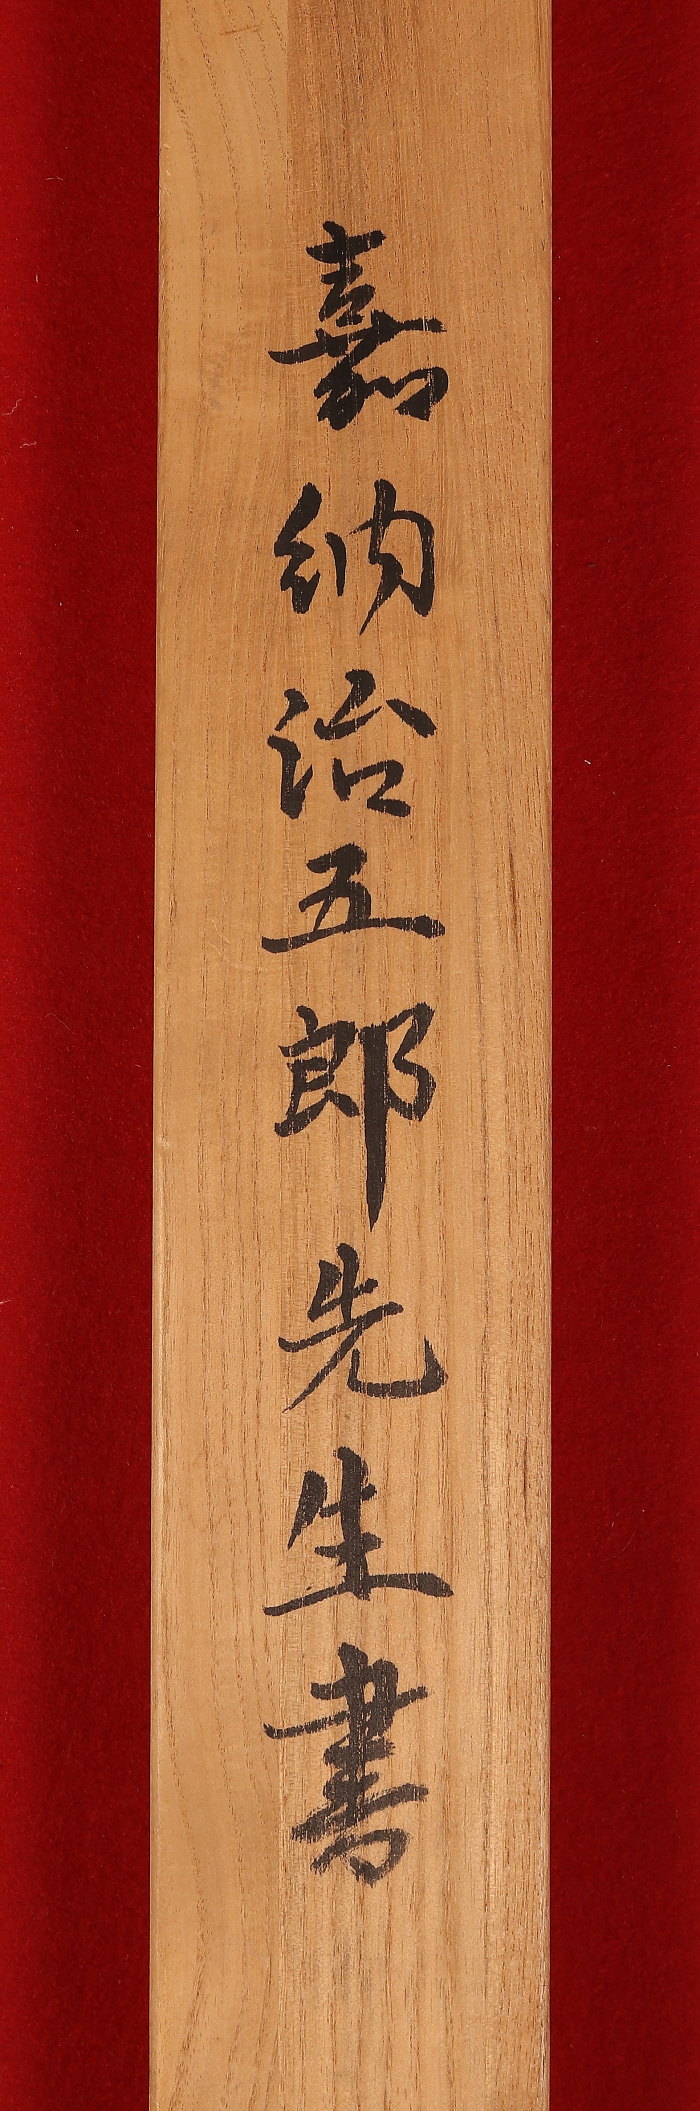 嘉納治五郎先生書